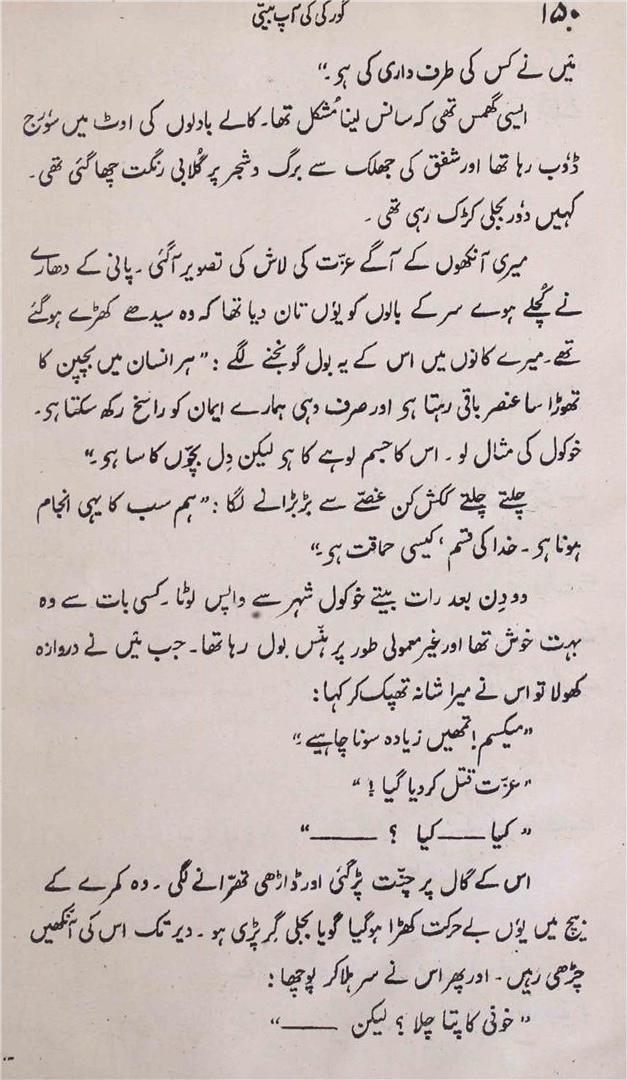 ۱۵۰
گورکی کی آپ بیتی
مَیں نے کس کی طرف داری کی ہو۔“
ایسی گھمس تھی کہ سانس لینا مُشکل تھا۔ کالے بادلوں کی اوٹ میں سوٗرج
ڈوٗب رہا تھا اور شفق کی جھلک سے برگ و شجر پر گلابی رنگت چھا گئی تھی۔
کہیں دوٗر بجلی کڑک رہی تھی۔
میری آنکھوں کے آگے عزّت کی لاش کی تصویر آگئی۔ پانی کے دھارے
نے کُچلے ہوے سر کے بالوں کو یوٗں تان دیا تھا کہ وہ سیدھے کھڑے ہوگئے
تھے۔ میرے کانوں میں اس کے یہ بول گونجنے لگے : ”ہر انسان میں بچپن کا
تھوڑا سا عنصر باقی رہتا ہو اور صرف وہی ہمارے ایمان کو راسخ رکھ سکتا ہو۔
خوکول کی مثال لو۔ اس کا جسم لوہے کا ہو لیکن دِل بچّوں کا سا ہو۔“
چلتے چلتے ککش کن غصّے سے بڑبڑانے لگا : ”ہم سب کا یہی انجام
ہونا ہو۔ خدا کی قسم، کیسی حماقت ہو۔“
دو دِن بعد رات بیتے خوکول شہر سے واپس لوٹا۔ کسی بات سے وہ
بہت خوش تھا اور غیر معمولی طور پر ہنس بول رہا تھا۔ جب مَیں نے دروازہ
کھولا تو اس نے میرا شانہ تھپک کر کہا :
”میکسم! تمھیں زیادہ سونا چاہیے۔“
”عزّت قتل کر دیا گیا!“
”کیا —— کیا ؟ ———“
اس کے گال پر چنّٹ پڑگئی اور ڈاڑھی تھرّانے لگی۔ وہ کمرے کے
بیچ میں یوٗں بے حرکت کھڑا ہوگیا گویا بجلی گِر پڑی ہو۔ دیر تک اس کی آنکھیں
چڑھی رہیں۔ اور پھر اس نے سر ہلاکر پوچھا :
”خونی کا پتا چلا ؟ لیکن ———“